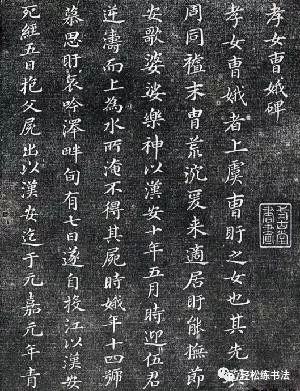 孝女曹娥碑
孝女曹娥者上虞曹盱之女也其先
周同祖末胄荒沉爰来適居盱能撫節
安歌婆娑樂神以漢安年五月時迎伍君
逆濤而上為水所淹不得其屍時娥年十四號
慕思盱哀吟澤畔旬有七日遂自投江以漢安
死經五日抱父屍出以漢安迄于元嘉元年青
轻松练书法